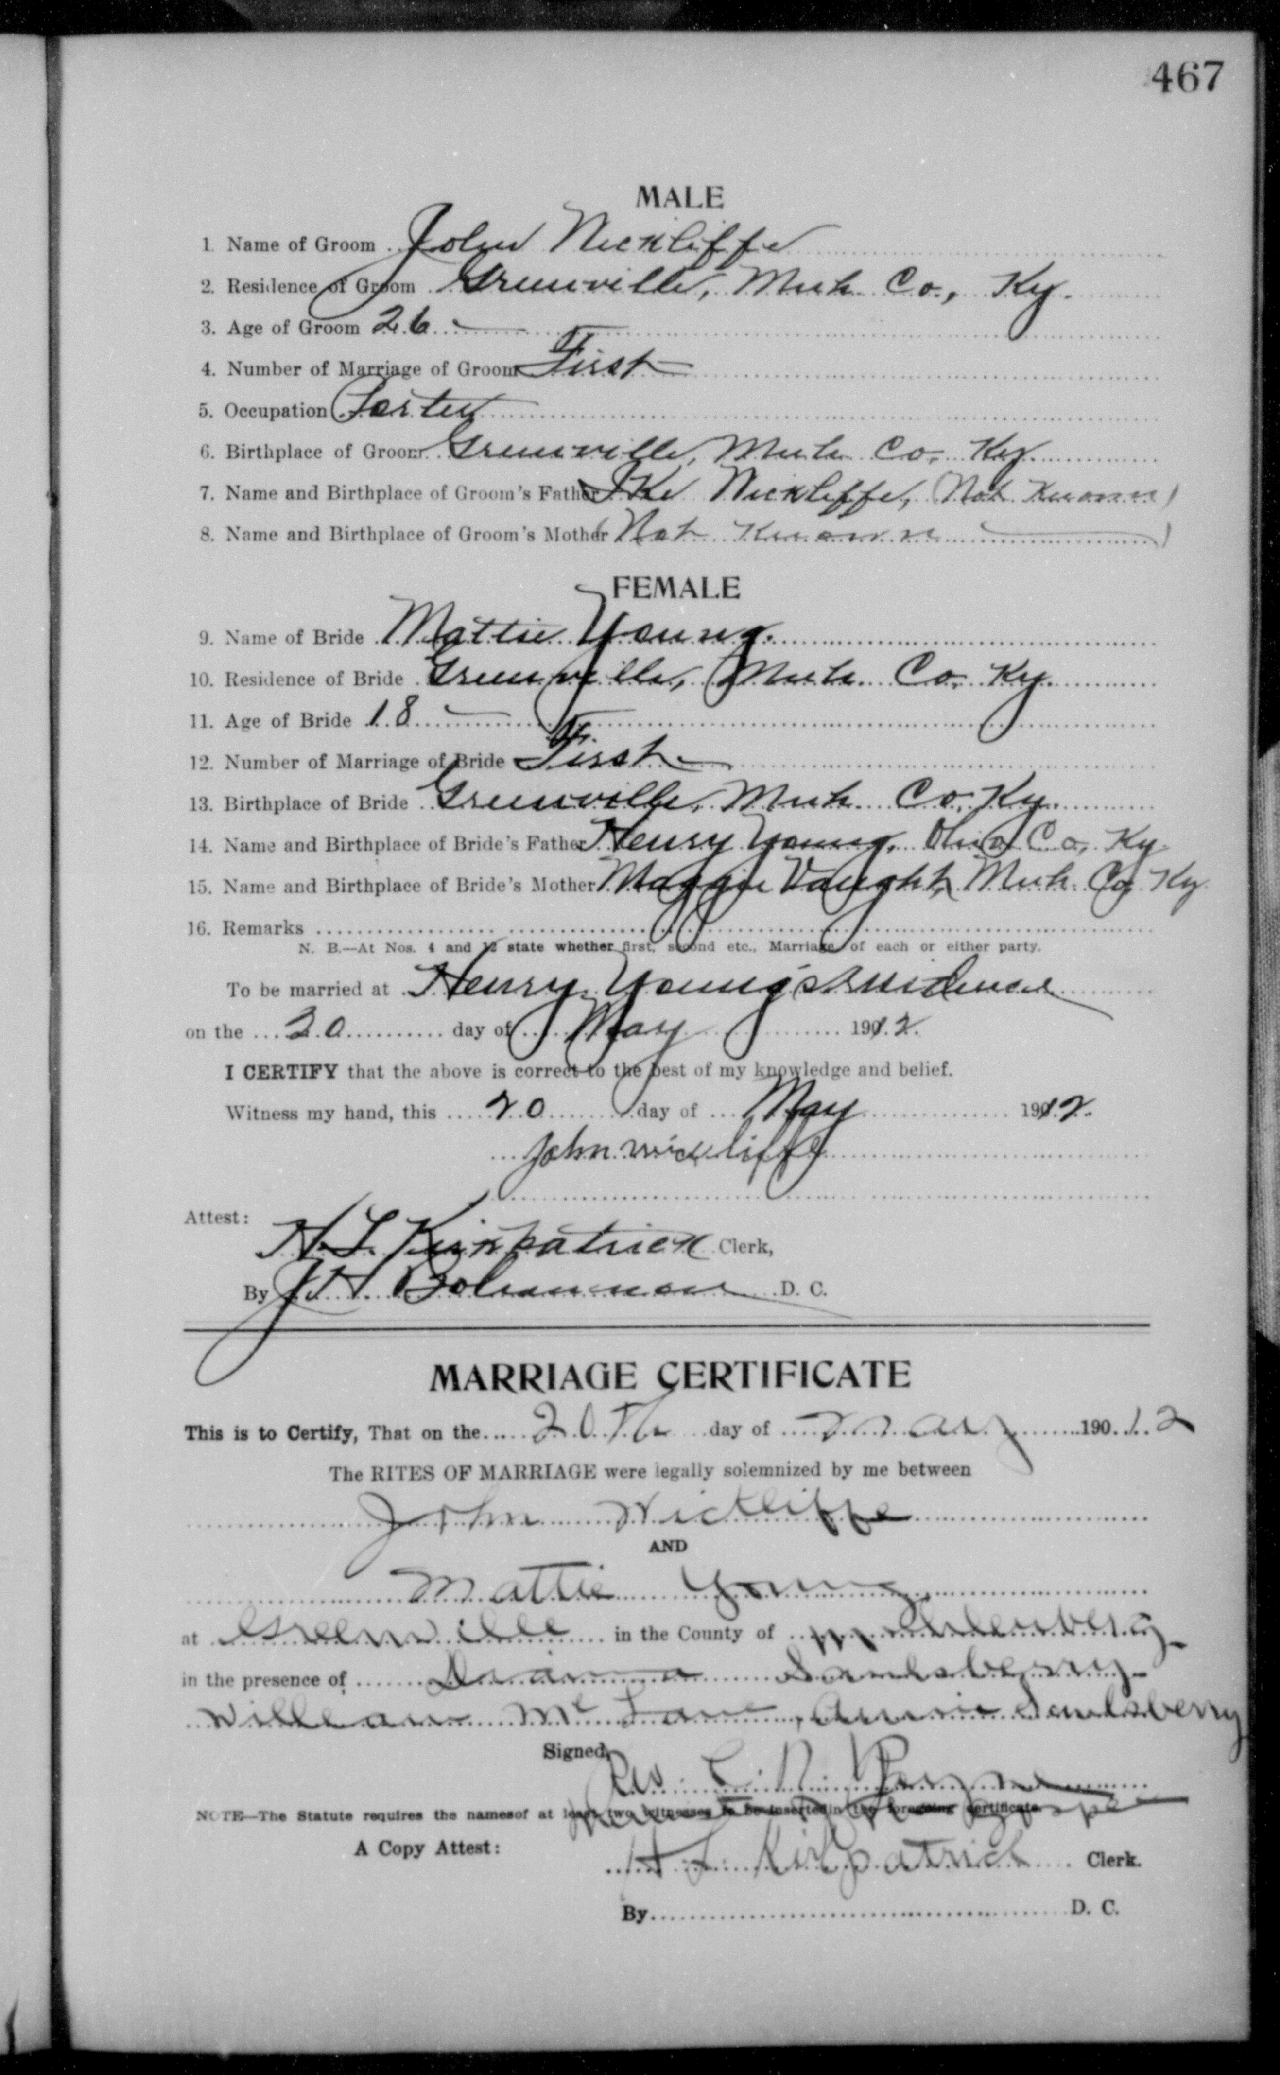 467
MALE
1. Name of Groom John Wickliffe
2. Residence of Groom Greenville, Muh. Co., Ky.
3. Age of Groom 26
4. Number of Marriage of Groom First
5. Occupation Porter
6. Birthplace of Groom Greenville, Muh. Co. Ky.
7. Name and Birthplace of Groom's Father Ike Wickliffe, (Not Known)
8. Name and Birthplace of Groom's Mother (Not Known )
FEMALE
9. Name of Bride Mattie Young.
10. Residence of Bride Greenville, Muh. Co. Ky.
11. Age of Bride 18
12. Number of Marriage of Bride First
13. Birthplace of Bride Greenville, Muh. Co. Ky.
14. Name and Birthplace of Bride's Father Henry Young, Ohio Co. Ky
15. Name and Birthplace of Bride's Mother Maggie Vaught, Muh. Co, Ky
16. Remarks
N. B.—At Nos. 4 and 12 state whether first, second etc., Marriage of each or either party.
To be married at Henry Young's residence
on the 20 day of May 1912.
I CERTIFY that the above is correct to the best of my knowledge and belief.
Witness my hand, this 20 day of May 1912.
John wickliffe
Attest:
H. L. Kirkpatrick Clerk,
By J H Bohannon D. C.
MARRIAGE CERTIFICATE
This is to Certify, That on the 20th day of May 19012
The RITES OF MARRIAGE were legally solemnized by me between
John Wickliffe
AND
Mattie Young
at Greenville in the County of Muhlenberg
in the presence of Saulsberry
William McLane, Annie Saulsberry
Signed, Rev. L. R. Payne
NOTE—The Statute requires the namesof at least two witnesses to be inserted in the foregoing certificate
A Copy Attest:
H L Kirkpatrick Clerk.
By D. C.